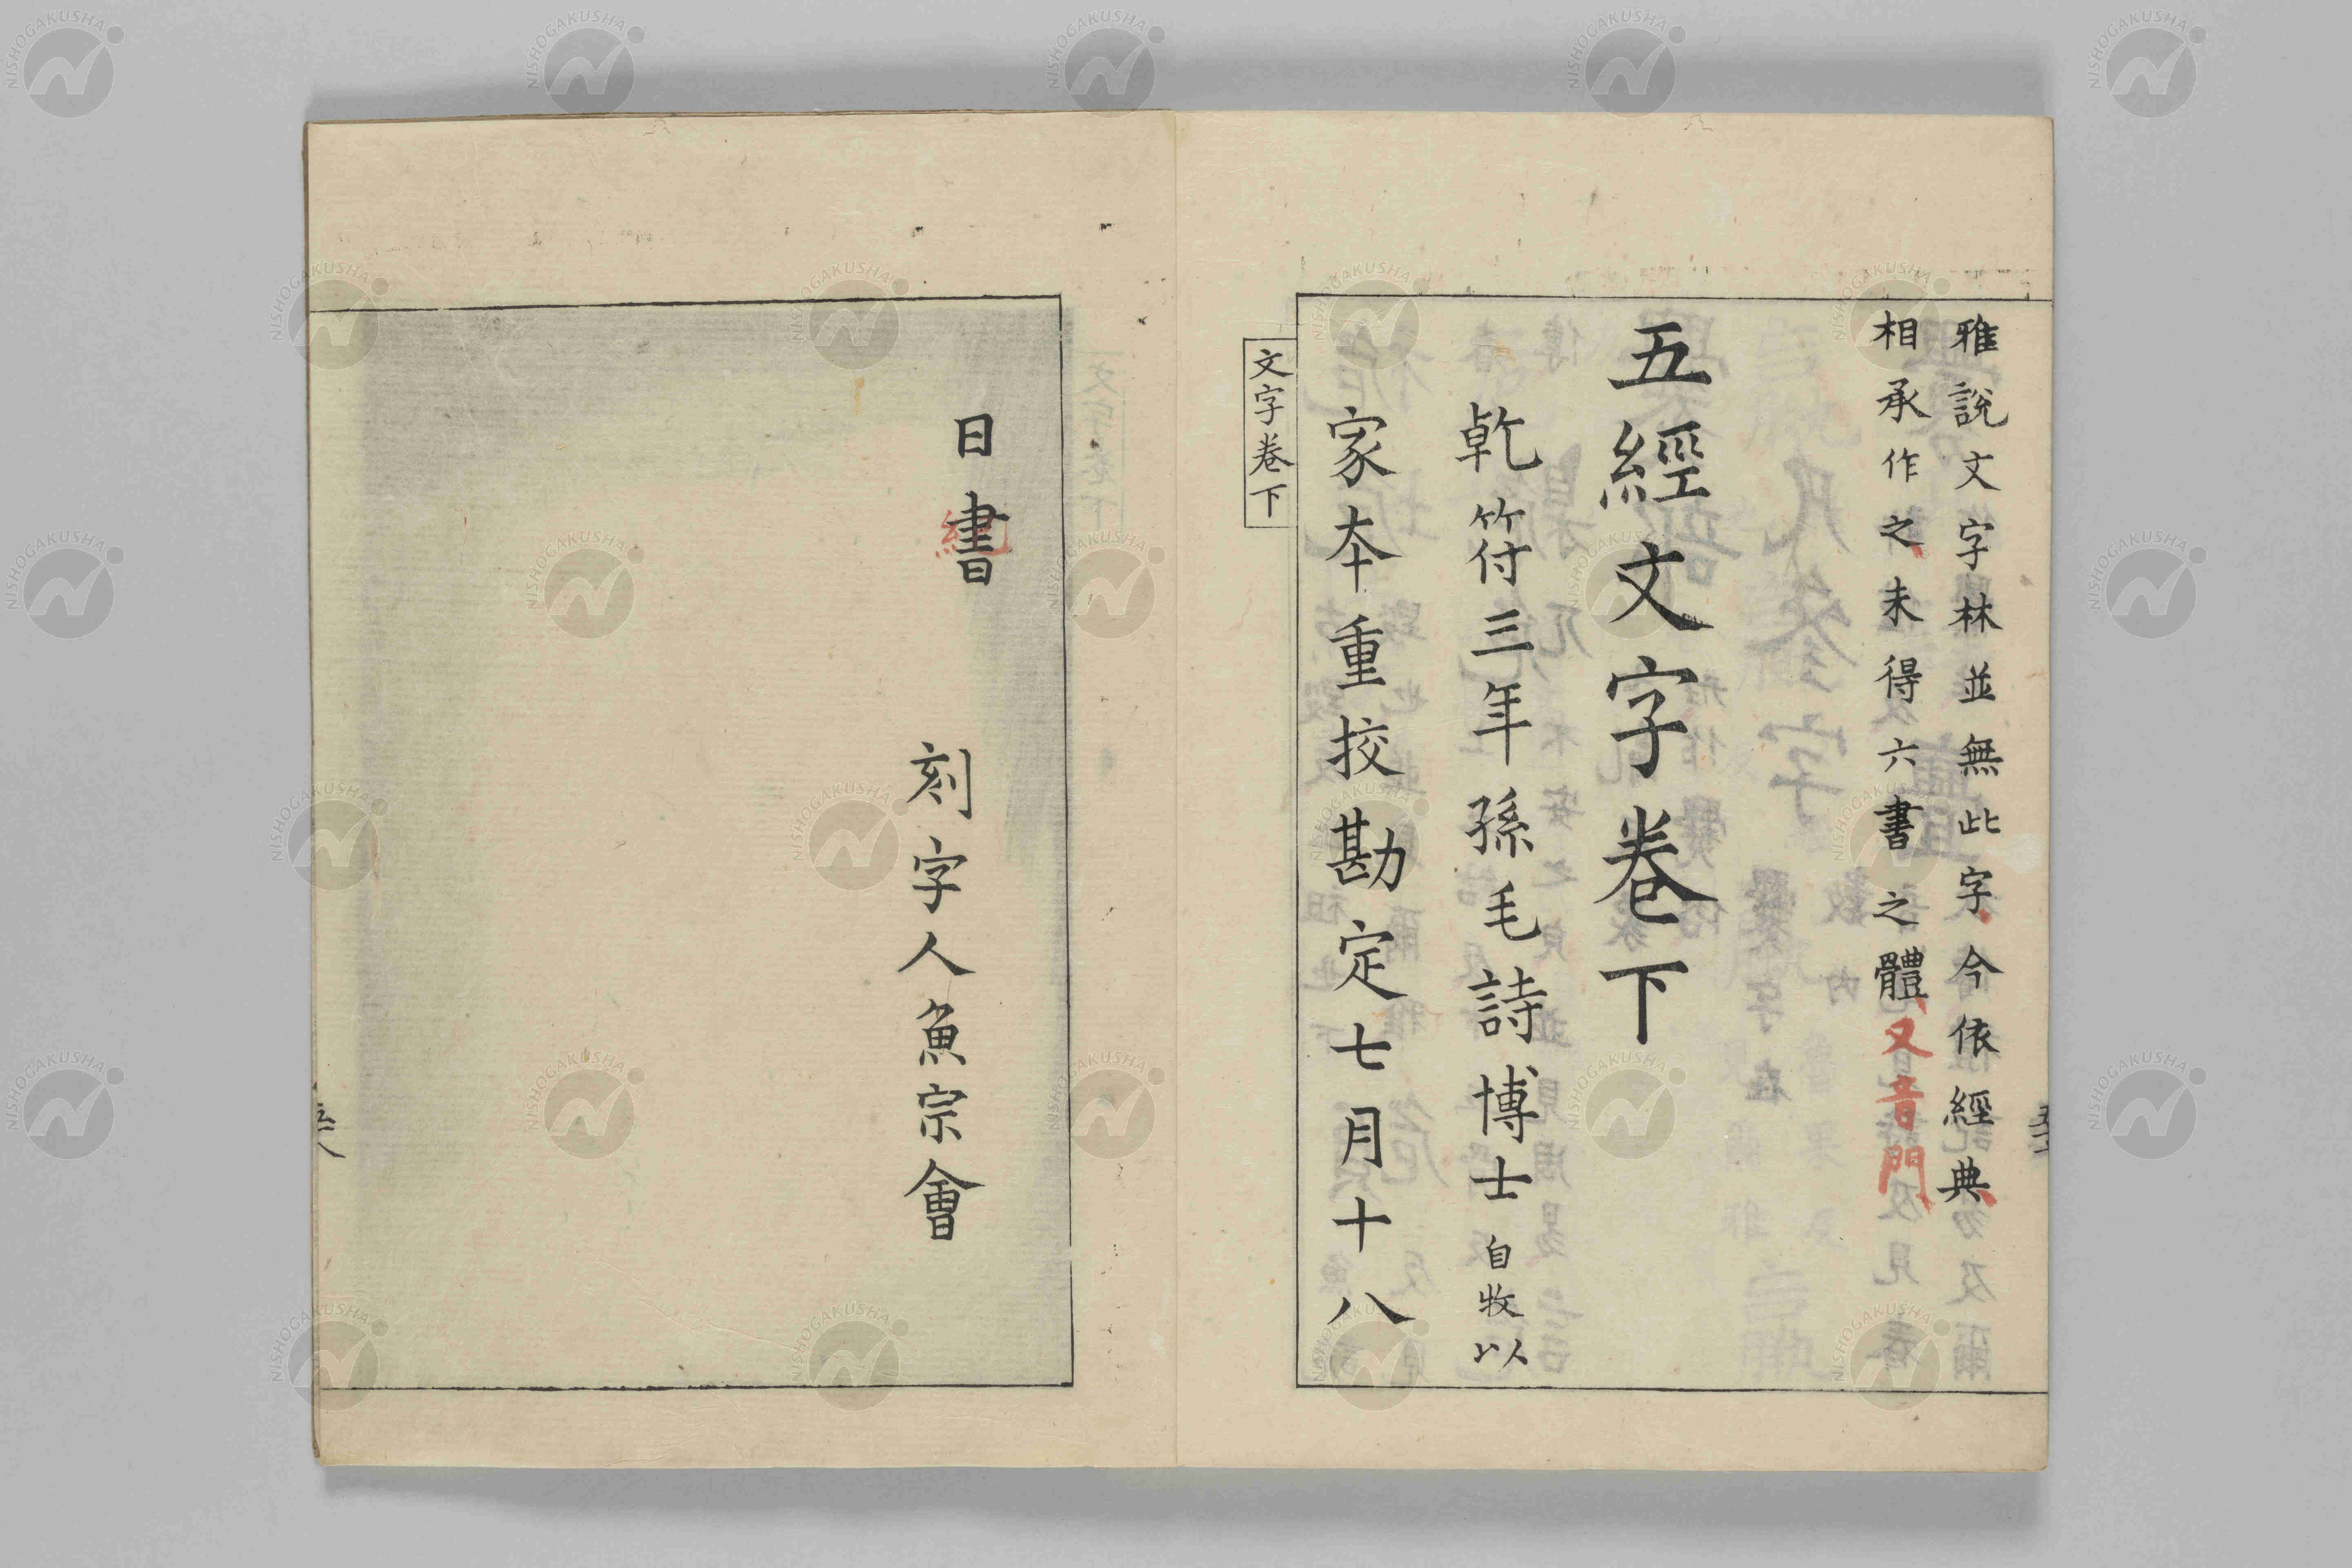 雅說文字林並無此字今依經典
相承作之未得六書之體又音門
五經文字卷下
乾符三年孫毛詩博士自牧以
家本重挍勘定七月十八
文字卷下
日書
刻字人魚宗會
NISHOGAKUSHA